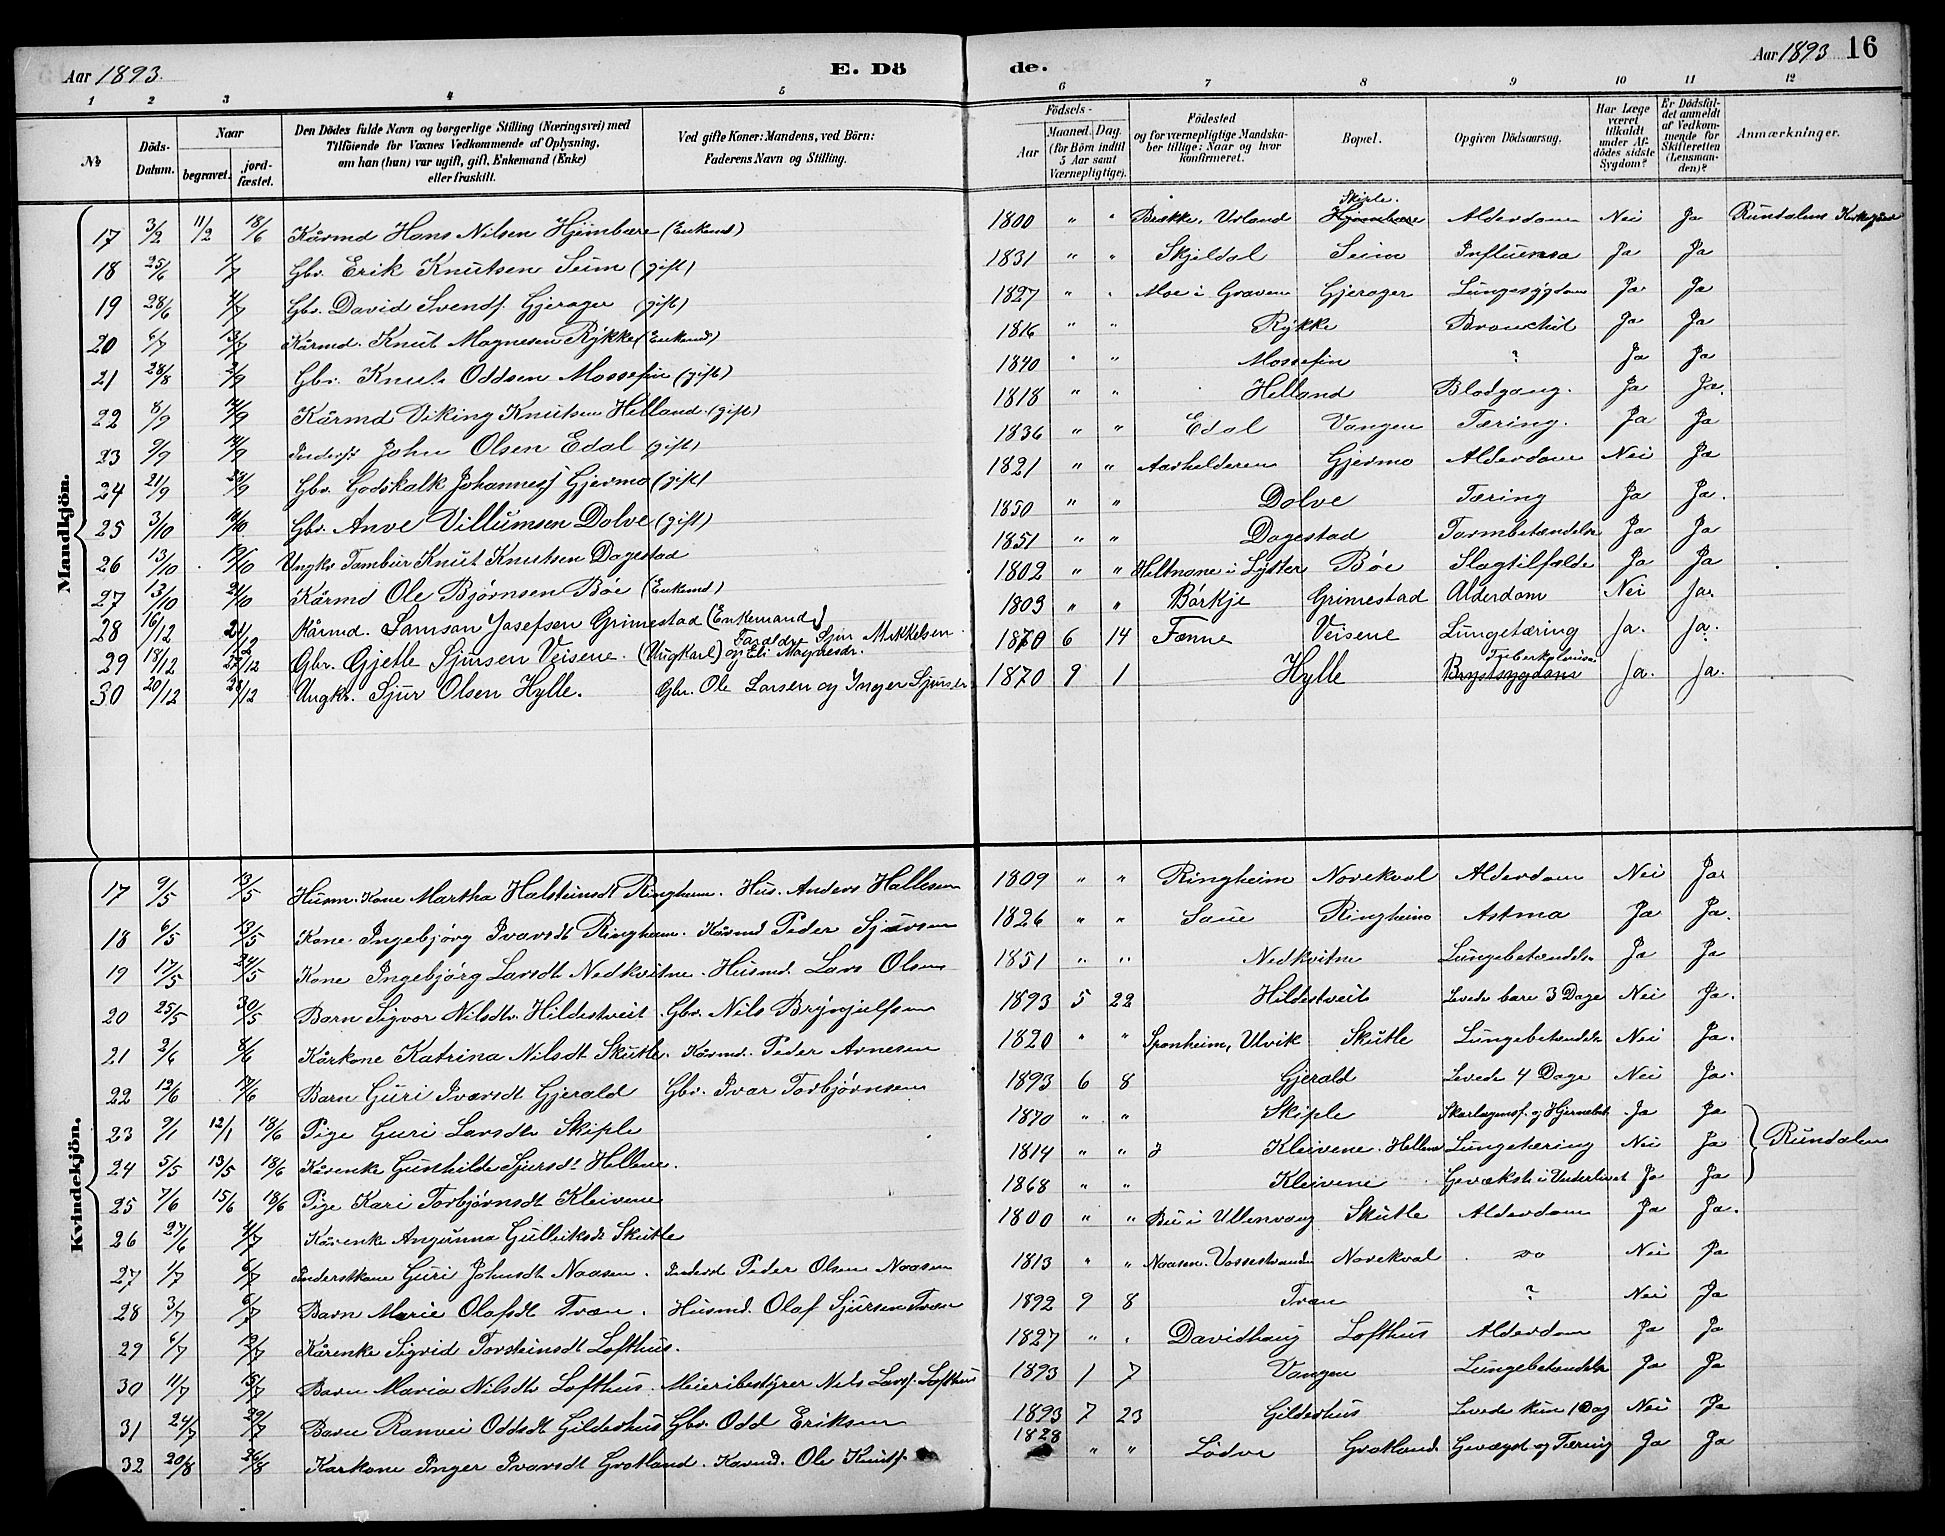 Aar 1893. E. Dö de. Aar 1893 16
1 2 3 4 5 6 7 8 9 10 11 12
No Döds-Datum. Naar begravet. jord-fæstet. Den Dödes fulde Navn og borgerlige Stilling (Næringsvei) med Tilföiende for Voxnes Vedkommende af Oplysning, om han (hun) var ugift, gift, Enkemand (Enke) eller fraskilt. Ved gifte Koner: Mandens, ved Börn: Faderens Navn og Stilling. Födsels- Aar Maaned. Dag. (for Börn indtil 5 Aar samt Værnepligtige). Födested og for værnepligtige Mandskaber tillige: Naar og hvor konfirmeret. Bopæl. Opgiven Dödsaarsag. Har Læge været tilkaldt under Afdödes sidste Sygdom? Er Dödsfaldet anmeldt af Vedkommende for Skifteretten (Lensmanden)? Anmærkninger.
Mandkjön.
17 3/2 11/2 18/6 Kårmd Hans Nilsen Hjembære (Enkemd) 1800 " " Brekke, Urland Skiple. Hjembære Alderdom Nei Ja Rundalens Kirkegaard
18 25/6 1/7 Gbr. Erik Knutsen Seim (gift) 1831 " " Skjeldal Seim Influensa Ja Ja
19 28/6 4/7 Gbr. David Svends. Gjerager (gift) 1827 " " Moe i Graven Gjerager Lungesygdom Ja Ja
20 6/7 13/7 Kårmd. Knut Magnesen Rykke (Enkemd) 1816 " " Rykke Bronchit Ja Ja
21 28/8 2/9 Gbr. Knut Oddsen Mossefin (gift) 1840 " " Mossefin ? Ja Ja
22 8/9 14/9 Kårmd Viking Knutsen Helland (gift) 1818 " " Helland Blodgang. Ja Ja.
23 9/9 14/9 Inderst John Olsen Edal (gift) 1836 " " Edal Vangen Tæring. Ja Ja
24 21/9 28/9 Gbr. Godskalk Johanness Gjermo (gift) 1821 " " Aarhelderen Gjermo Alderdom Nei Ja
25 3/10 10/10 Gbr. Anve Villumsen Dolve (gift) 1850 " " Dolve Tæring Ja Ja.
26 13/10 19/10 Ungkr Tambur Knut Knutsen Dagestad 1851 " " Dagestad Tarmbetændelse Ja Ja
27 13/10 21/10 Kårmd Ole Bjørnsen Bøe (Enkemd) 1802 " " Heltnane i Lyster Bøe Slagtilfælde Ja Ja
28 16/12 21/12 Kårmd. Samson Josefsen Grimestad (Enkemand) 1803 " " Børkje Grimestad Alderdom Nei Ja.
29 18/12 27/12 Gbr. Gjetle Sjursen Veisene. (Ungkarl) Foraldre Sjur Mikkelsen og Eli Magnesdr. 1870 6 14 Fænne Veisene Lungetæring Ja. Ja.
30 20/12 28/12 Ungkr. Sjur Olsen Hylle. Gbr. Ole Larsen og Inger Sjursdr 1870 9 1 Hylle Tuberkulose Brystsygdom Ja. Ja.
Kvindekjön.
17 9/5 13/5 Husm. Kone Martha Halsteinsdt Ringheim. Hus. Anders Hallesen 1809 " " Ringheim Norekval Alderdom Nei Ja
18 6/5 13/5 Kone Ingebjørg Ivarsdt Ringheim. Kårmd Peder Sjursen 1826 " " Saue Ringheim Astma Ja Ja.
19 17/5 24/5 Kone Ingebjørg Larsdt Nedkvitne. Husmd. Lars Olsen 1851 " " Nedkvitne Lungebetændelse Ja Ja
20 25/5 30/5 Barn Sigvor Nilsdtr Hildestveit. Gbr. Nils Brynjulfsen 1893 5 22 Hildestveit Levede bare 3 Dage Nei Ja.
21 2/6 8/6 Kårkone Katrina Nilsdt Skutle. Kårmd. Peder Arnesen 1820 " " Sponheim, Ulvik Skutle Lungebetændelse Nei Ja.
22 12/6 17/6 Barn Guri Ivarsdt Gjerald Gbr. Ivar Torbjørnsen 1893 6 8 Gjerald Levede 4 Dage Nei Ja.
23 9/1 12/1 18/6 Pige Guri Larsdt Skiple 1870 " " Skiple Skarlagensf. og Hjernebet. Ja Ja
24 5/5 13/5 18/6 Kårenke Gunhilde Sjursdt Hellene. 1814 " " Kleivene. Hellene Lungetæring Nei Ja Rundalen
25 7/6 15/6 18/6 Pige Kari Torbjørnsdt Kleivene 1868 " " Kleivene Gevækst i Underlivet Ja Ja
26 27/6 4/7 Kårenke Angunna Gulleiksdt Skutle 1800 " " Bu i Ullensvang Skutle Alderdom Ja Ja.
27 1/7 6/7 Inderstkone Guri Johnsdt Naasen. Inderst Peder Olsen Naasen 1813 " " Naasen. Vossestranden Norekval do Nei Ja
28 3/7 6/7 Barn Marie Olafsdt Tvæn. Husmd. Olaf Sjursen Tvæn 1892 9 8 Tvæn ? Nei Ja
29 6/7 12/7 Kårenke Sigrid Torsteinsdt Lofthus. 1827 " " Davidhaug Lofthus Alderdom Ja Ja
30 11/7 15/7 Barn Maria Nilsdtr Lofthus. Meieribestyrer Nils Larss. Lofthus 1893 1 7 Vangen Lungebetændelse Ja Ja
31 24/7 29/7 Barn Ranvei Oddsdt Gilderhus Gbr. Odd Eriksen 1893 7 23 Gilderhus Levede kun 1 Dag Nei Ja
32 20/8 26/8 Karkone Inger Ivarsdt Grotland. Karmd. Ole Knuts. 1828 " " Lødve Grotland Gevægst og Tæring Ja Ja